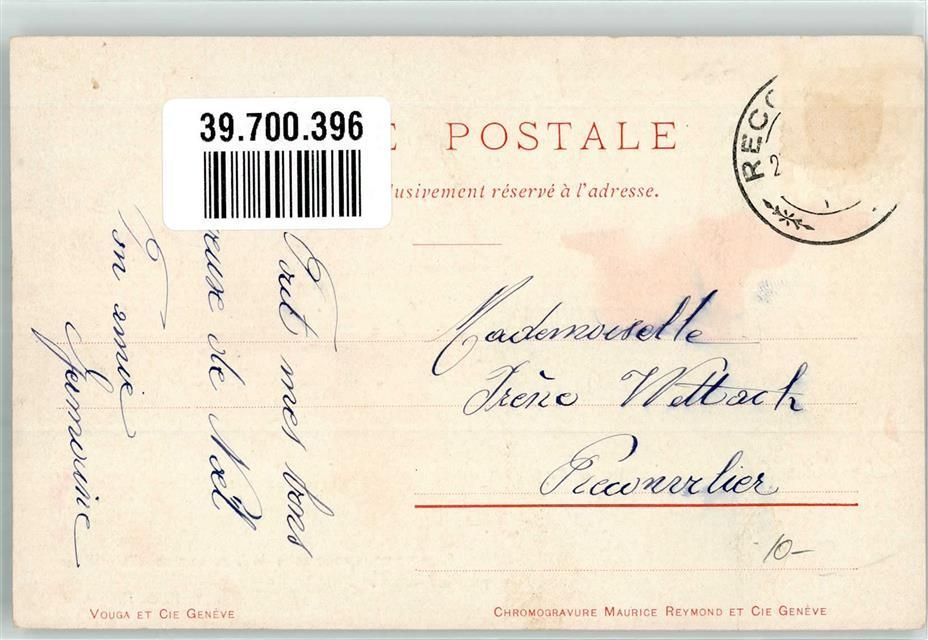 39.700.396
E POSTALE
lusivement réservé à l'adresse.
RECO
2
Mademoiselle
Irène Wettach
Reconvilier
10-
Tout mes bons
reux de Noël
Ton amie
Germaine
VOUGA ET CIE GENÈVE
CHROMOGRAVURE MAURICE REYMOND ET CIE GENÈVE